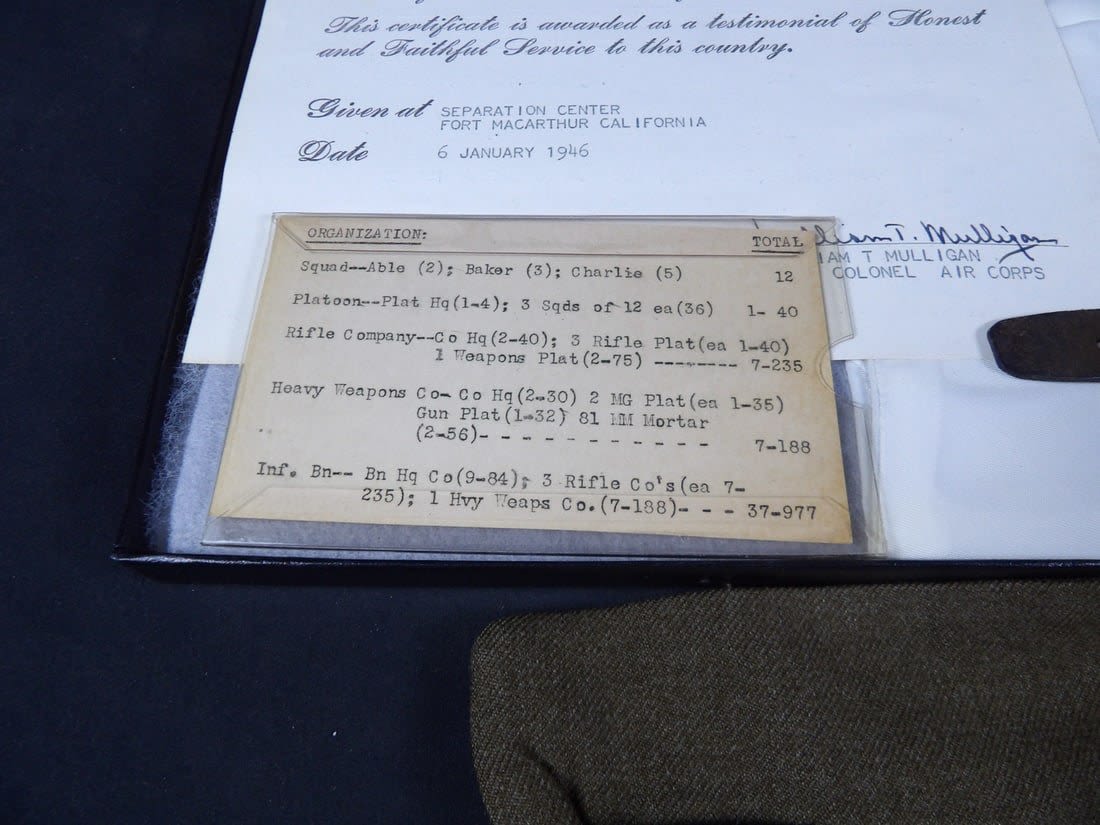 This certificate is awarded as a testimonial of Honest
and Faithful Service to this country.
Given at SEPARATION CENTER
FORT MACARTHUR CALIFORNIA
Date 6 JANUARY 1946
T. Mulligan
T MULLIGAN
COLONEL AIR CORPS
ORGANIZATION: TOTAL
Squad--Able (2); Baker (3); Charlie (5) 12
Platoon--Plat Hq(1-4); 3 Sqds of 12 ea(36) 1- 40
Rifle Company--Co Hq(2-40); 3 Rifle Plat(ea 1-40)
1 Weapons Plat(2-75) -------- 7-235
Heavy Weapons Co- Co Hq(2-30) 2 MG Plat(ea 1-35)
Gun Plat(1-32) 81 MM Mortar
(2-56)- - - - - - - - - - - 7-188
Inf. Bn-- Bn Hq Co(9-84); 3 Rifle Co's(ea 7-
235); 1 Hvy Weaps Co.(7-188)- - - 37-977